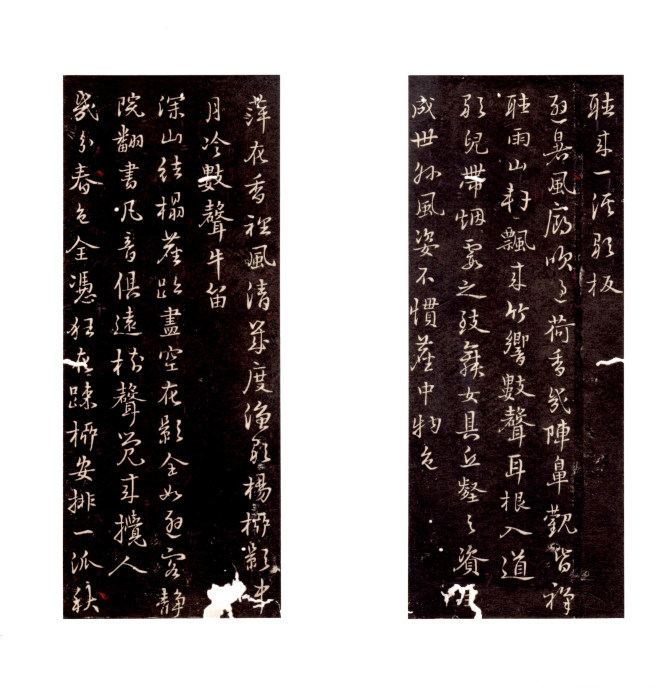 聽來一派歌板
避暑風廊吹過荷香幾陣鼻觀皆禪
聽雨山軒飄來竹響數聲耳根入道
歌兒帶烟霞之致舞女具丘壑之資生
成世外風姿不慣塵中物色
萍花香裡風清幾度漁歌楊柳影中
月冷數聲牛笛
深山結榻塵盡空花影全如避客靜
院翻書凡音俱遠聲來攪人
幾分春色全憑狂花疎柳安排一派秋